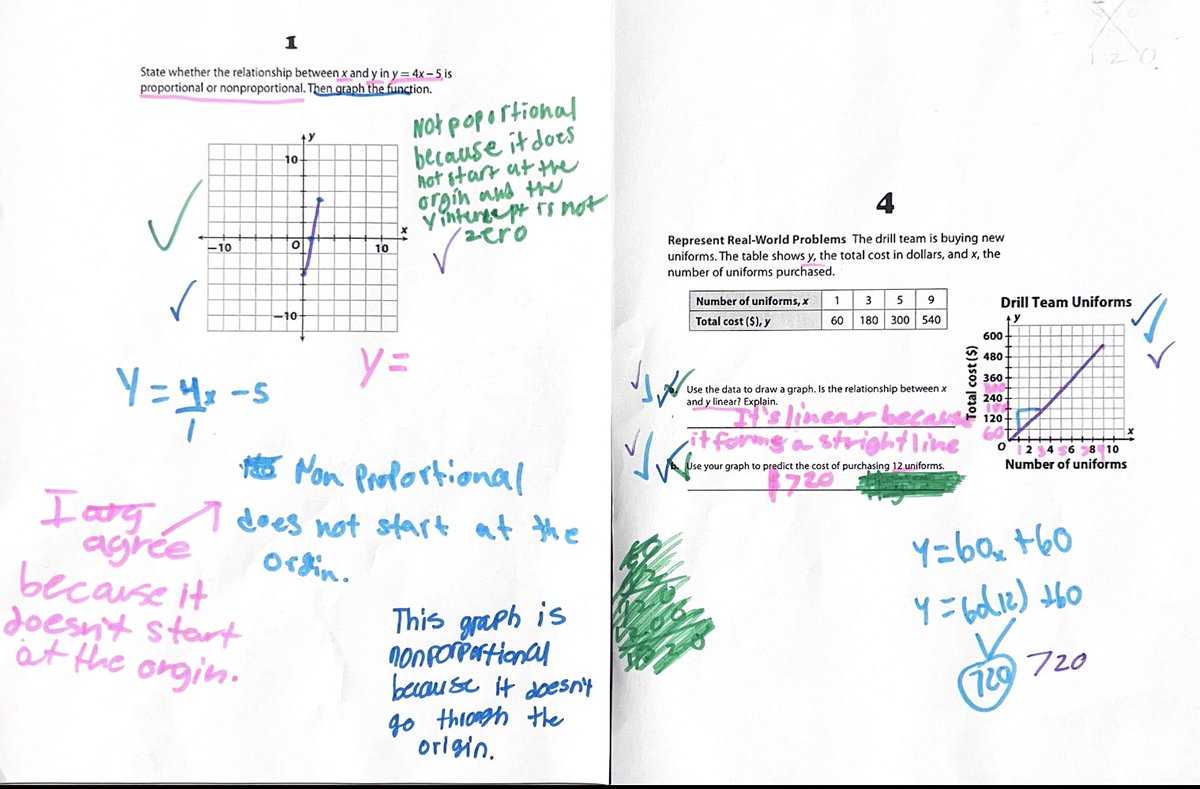 1
State whether the relationship between x and y in y = 4x – 5 is
proportional or nonproportional. Then graph the function.
y
10
x
–10
O
10
–10
Not poportional
because it does
not start at the
orgin and the
y intercept is not
zero
y=
Y = 4x - 5
1
Non Proportional
does not start at the
orgin.
I
agree
because it
doesn't start
at the orgin.
This graph is
nonporportional
because it doesn't
go through the
origin.
120
4
Represent Real-World Problems The drill team is buying new
uniforms. The table shows y, the total cost in dollars, and x, the
number of uniforms purchased.
Number of uniforms, x 1 3 5 9
Total cost ($), y 60 180 300 540
Use the data to draw a graph. Is the relationship between x
and y linear? Explain.
It's linear because
it forms a stright line
b. Use your graph to predict the cost of purchasing 12 uniforms.
$720
Drill Team Uniforms
y
Total cost ($)
600
480
360
240
120
60
x
O 2 3 4 5 6 7 8 9 10
Number of uniforms
y=60x +60
y=60(12) +60
720 720